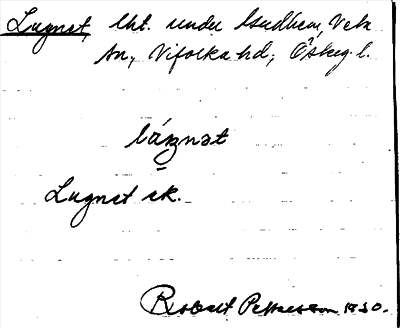 Lugnet, lht. under Sudhem, Veta
sn, Vifolka hd; Österg. l.
lúgnət
Lugnet ek.
Robert Pettersson 1930.